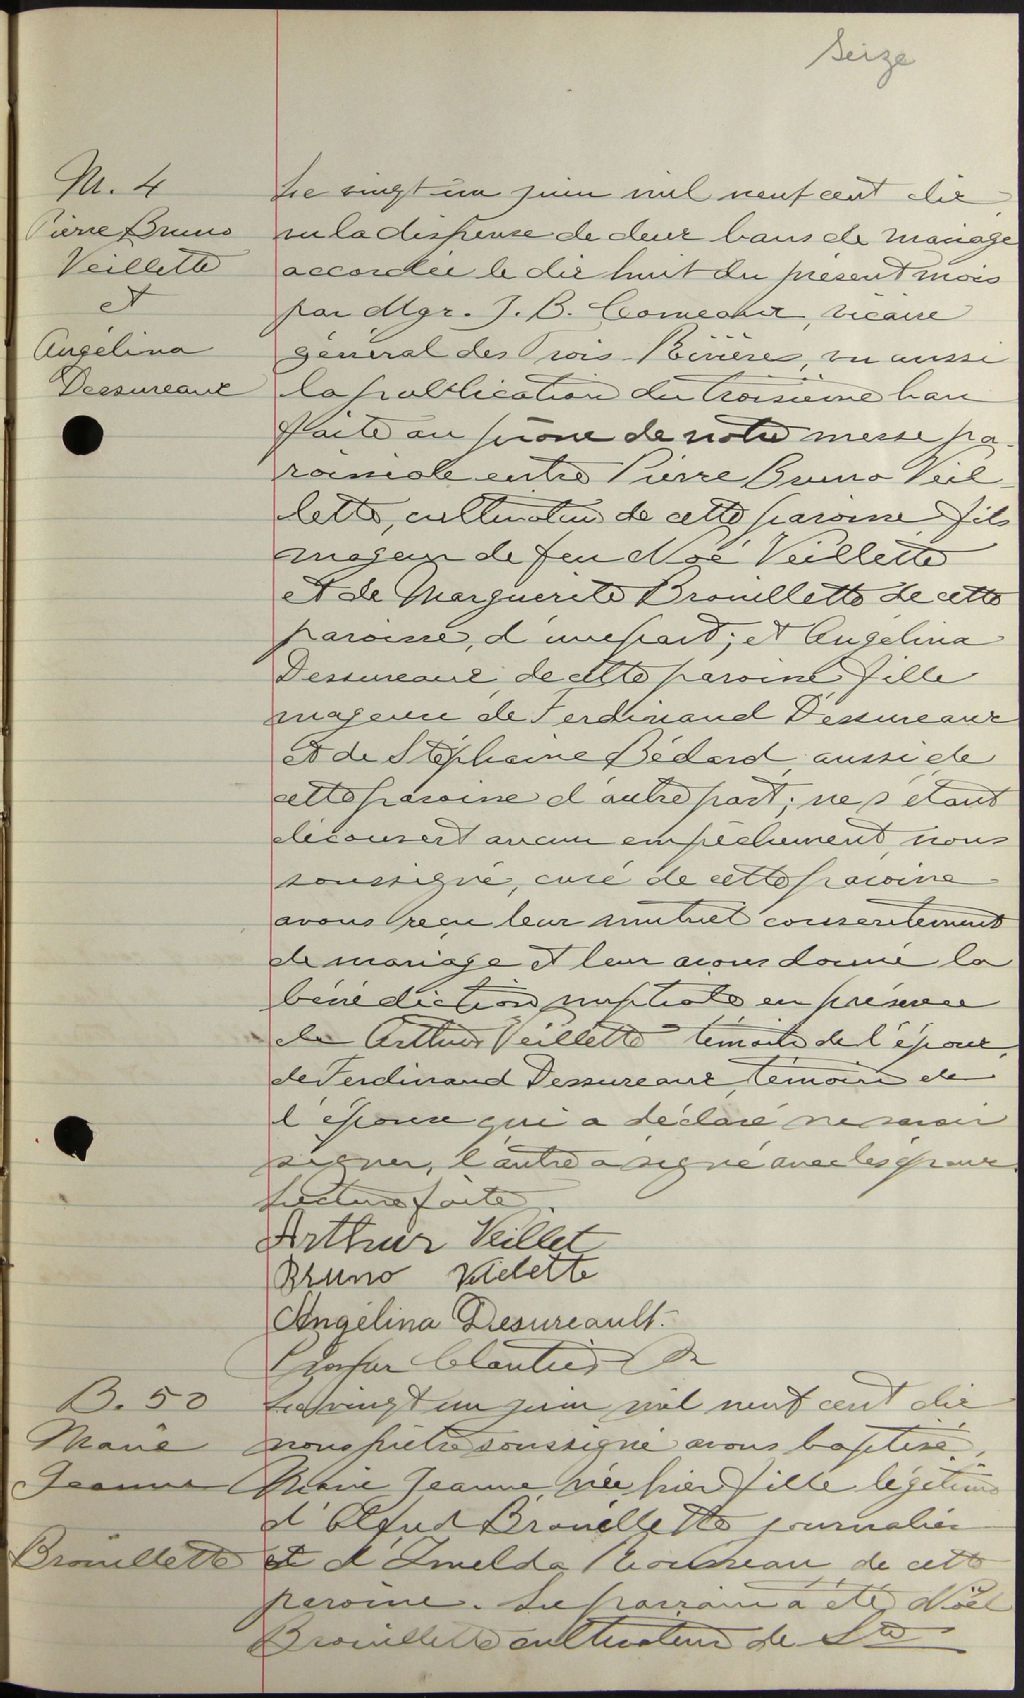 Seize
M. 4
Pierre Bruno
Veillette
et
Angélina
Dessureaux
Le vingt un juin mil neuf cent dix
vu la dispense de deux bans de mariage
accordée le dix huit du présent mois
par Mgr. J. B. Comeau, vicaire
général des Trois-Rivières, vu aussi
la publication du troisième ban
faite au prône de notre messe pa-
roissiale entre Pierre Bruno Veil-
lette, cultivateur de cette paroisse fils
majeur de feu Noé Veillette
et de Marguerite Brouillette de cette
paroisse, d'une part; et Angélina
Dessureaux de cette paroisse fille
majeure de Ferdinand Dessureaux
et de Stéphanie Bédard, aussi de
cette paroisse d'autre part; ne s'étant
découvert aucun empêchement, nous
soussigné, curé de cette paroisse
avons reçu leur mutuel consentement
de mariage et leur avons donné la
bénédiction nuptiale en présence
de Arthur Veillette témoin de l'époux,
de Ferdinand Dessureaux, témoin de
l'épouse qui a déclaré ne savoir
signer, l'autre a signé avec les époux.
Lecture faite.
Arthur Veillet
Bruno Veillette
Angélina Desureault.
Prosper Cloutier Ptre
B. 50
Marie
Jeanne
Brouillette
Le vingt un juin mil neuf cent dix
nous prêtre soussigné avons baptisé,
Marie Jeanne, née hier, fille légitime
d'Alfred Brouillette journalier
et d'Imelda Rousseau, de cette
paroisse. Le parrain a été Noël
Brouillette cultivateur de Ste